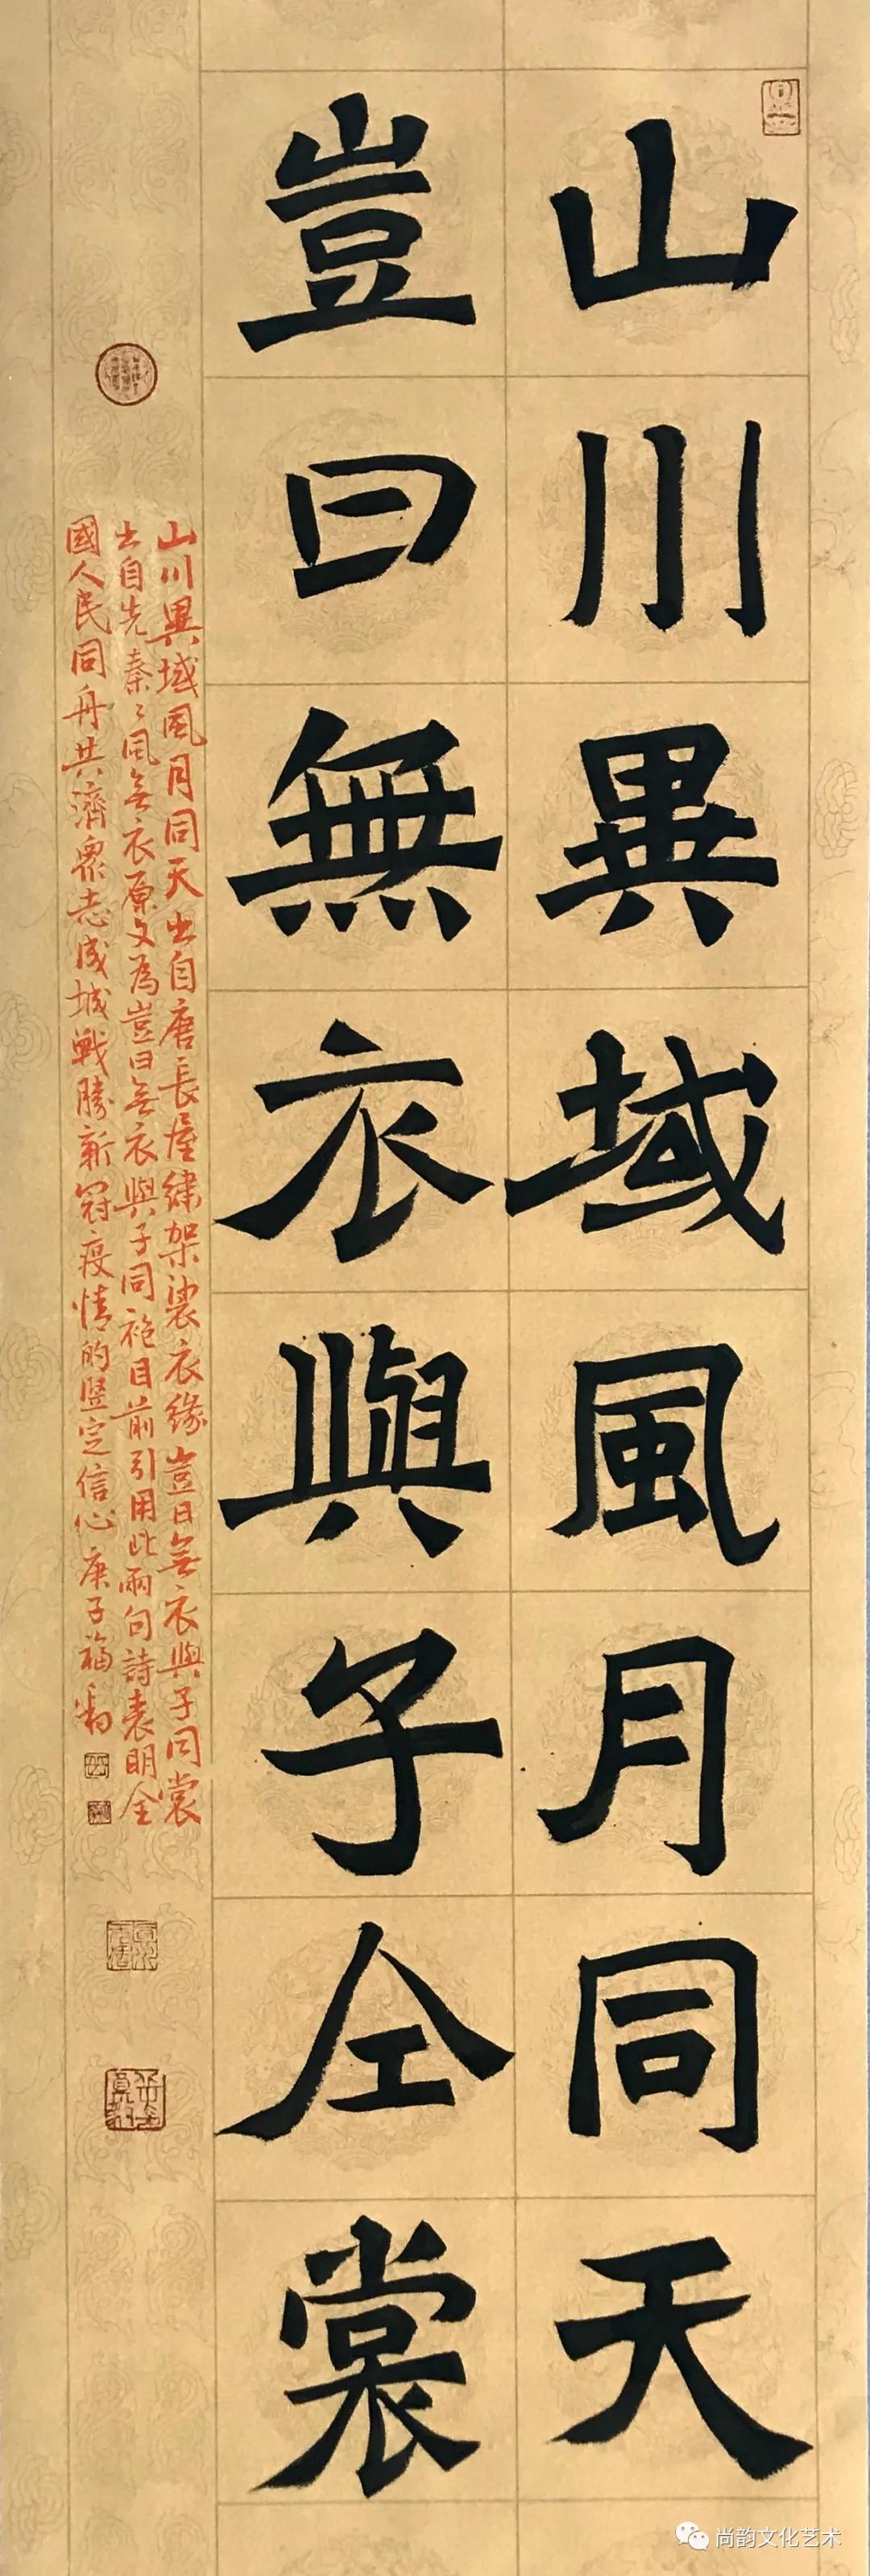 山川異域風月同天
豈曰無衣與子仝裳
山川異域風月同天出自唐長屋繡架裟衣緣豈曰無衣與子同裳
出自先秦〻風無衣原文為豈曰無衣與子同袍目前引用此兩句詩表明全
國人民同舟共濟眾志成城戰勝新冠疫情的堅定信心 庚子福
尚韵文化艺术